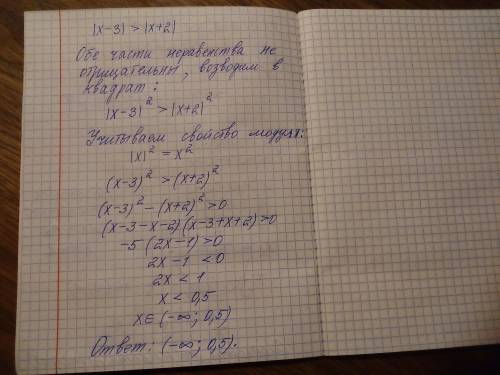 |x-3| > |x+2|
Обе части неравенства не
отрицательны, возводим в
квадрат:
|x-3|² > |x+2|²
Учитываем свойство модуля:
|x|² = x²
(x-3)² > (x+2)²
(x-3)² - (x+2)² > 0
(x-3-x-2)(x-3+x+2) > 0
-5(2x-1) > 0
2x-1 < 0
2x < 1
x < 0,5
x ∈ (-∞; 0,5)
Ответ: (-∞; 0,5).